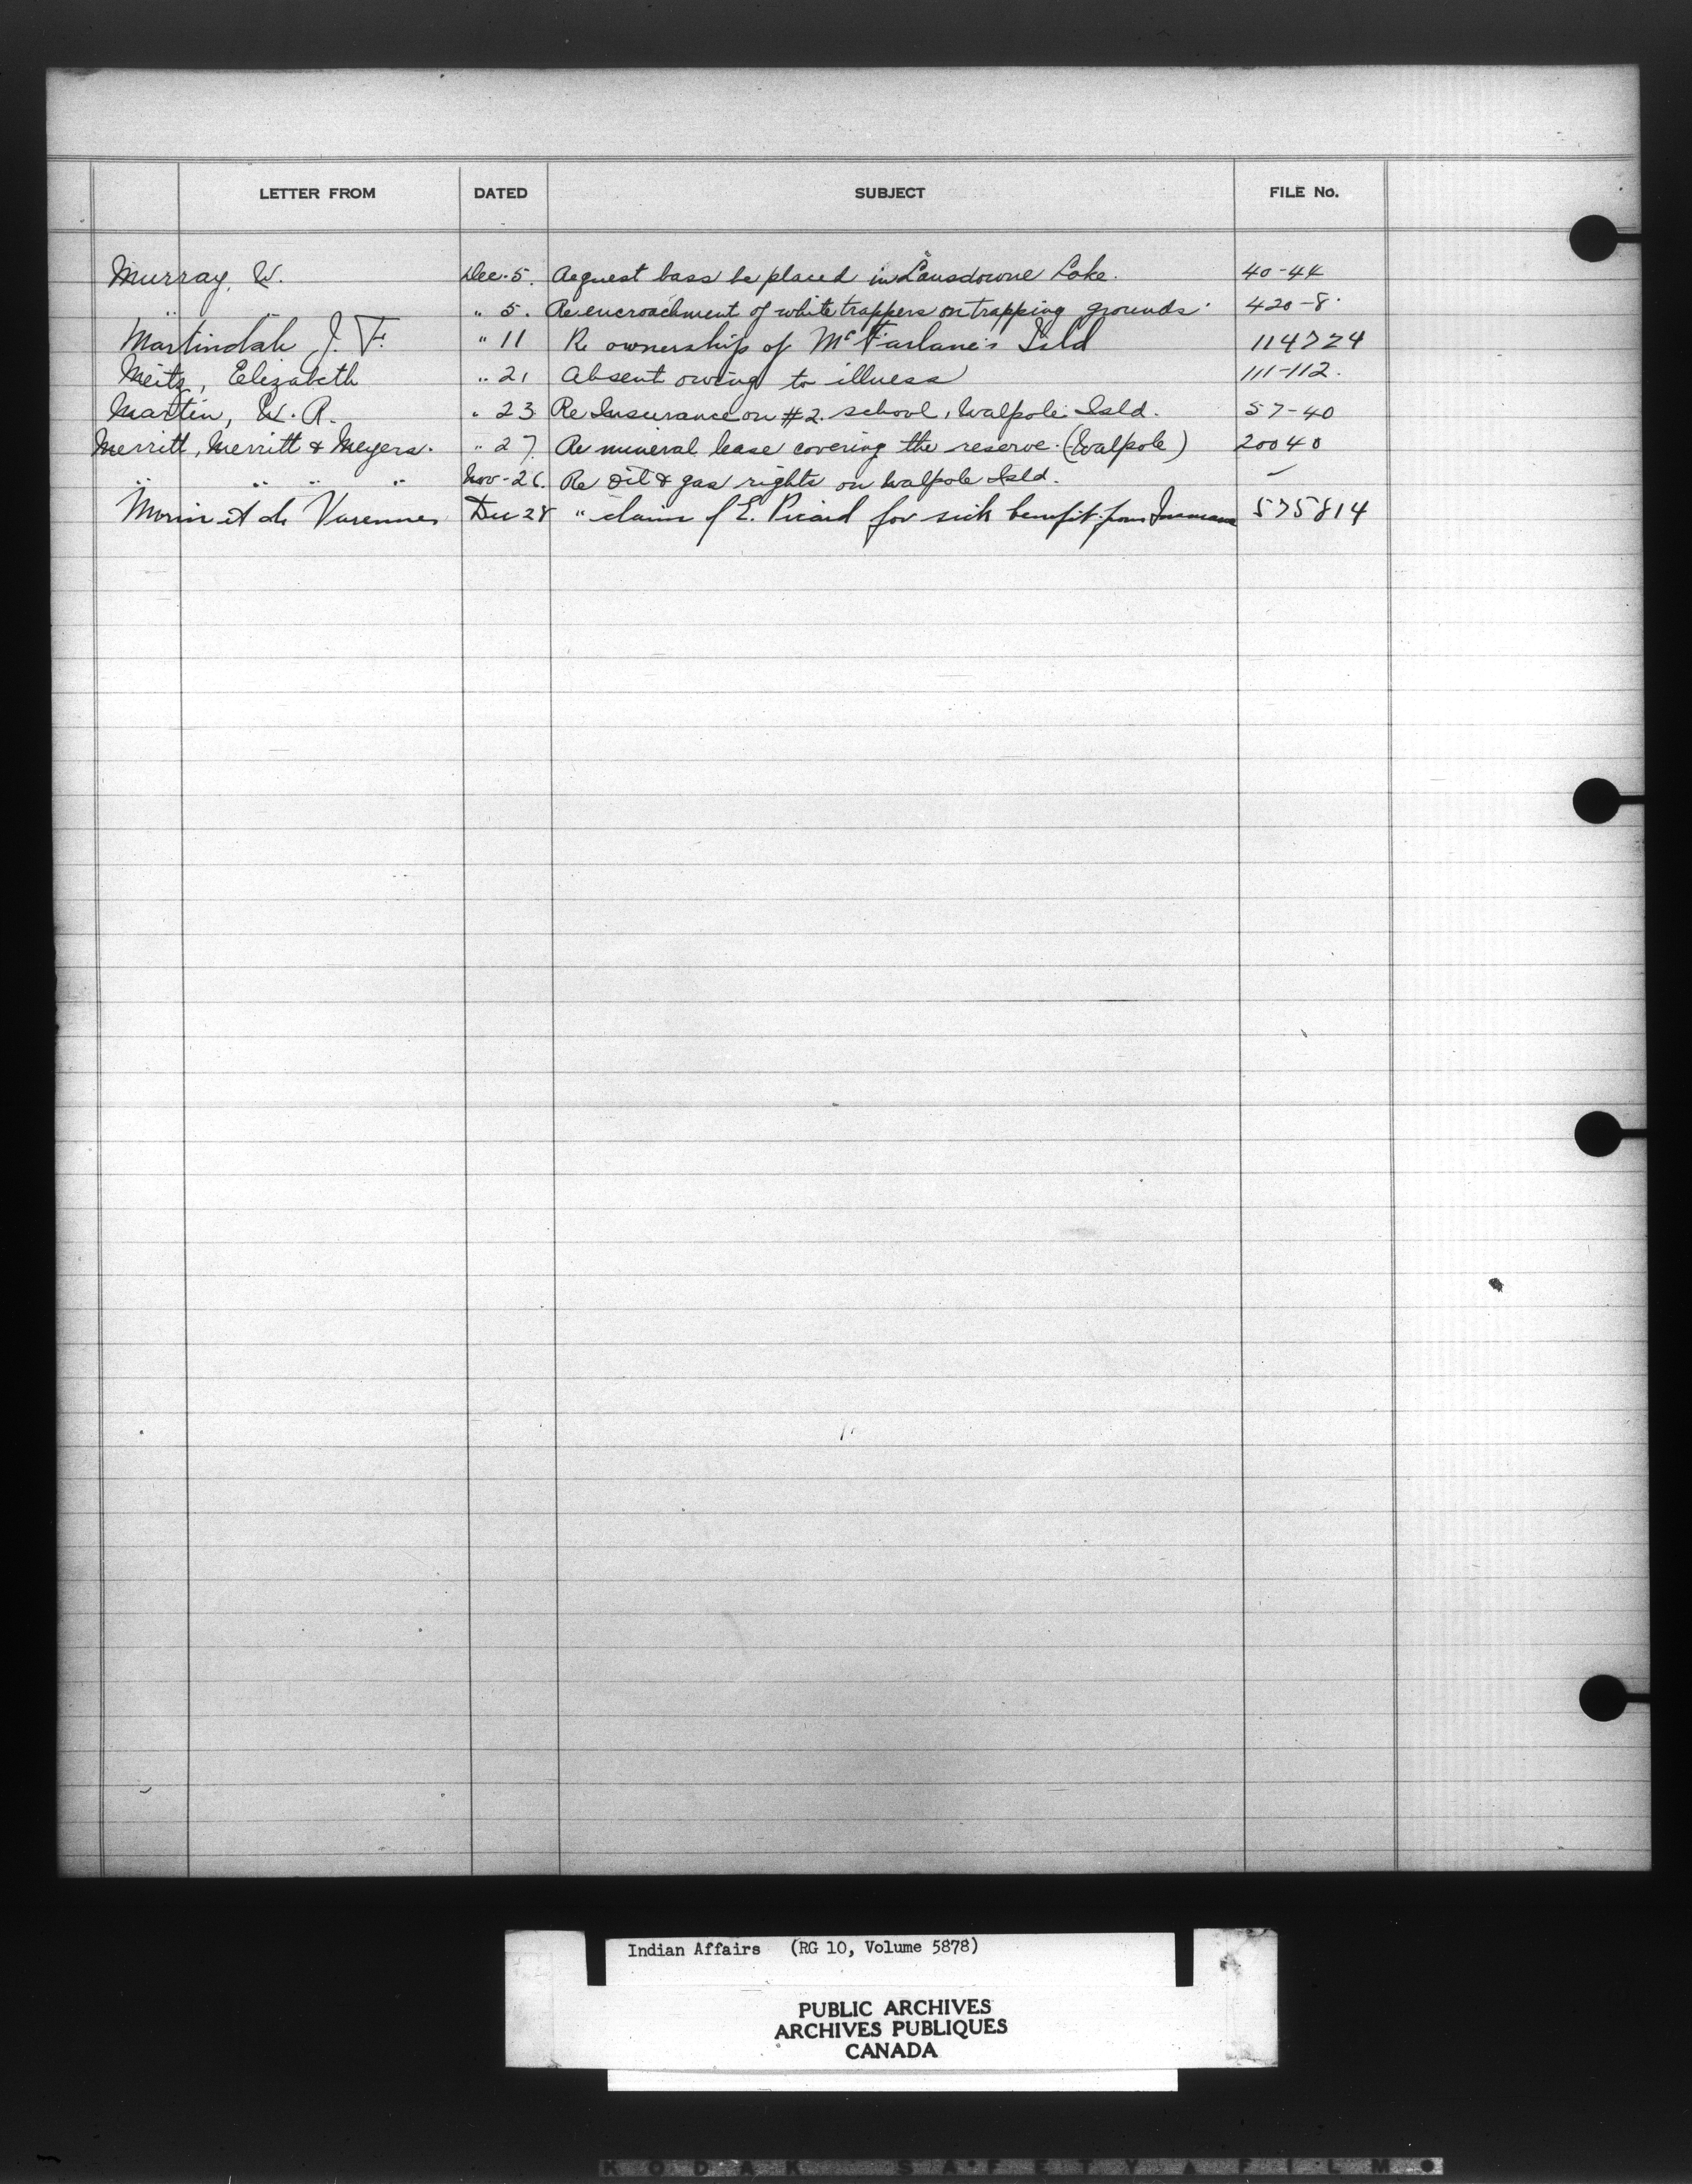 LETTER FROM DATED SUBJECT FILE No.
Murray, W. Dec. 5. Request bass be placed in Lansdowne Lake. 40-44
" " 5. Re encroachment of white trappers on trapping grounds. 420-8.
Martindale J. F. " 11 Re ownership of McFarlane's Isld 114724
Meitz, Elizabeth " 21 Absent owing to illness 111-112.
Martin, W. R. " 23 Re Insurance on #2. school, Walpole Isld. 57-40
Merritt, Merritt & Meyers. " 27. Re mineral lease covering the reserve. (Walpole) 20040
" " " " Nov-26. Re oil & gas rights on Walpole Isld. -
Morin et de Varennes Dec 28 " claim of E. Picard for sick benefit from Insurance 575814
Indian Affairs (RG 10, Volume 5878)
PUBLIC ARCHIVES
ARCHIVES PUBLIQUES
CANADA
KODAK SAFETY FILM